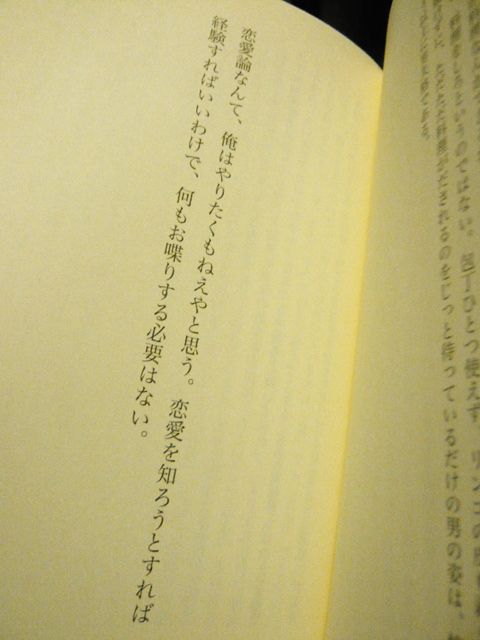 料理をしろというのではない。包丁ひとつ使えず、リンゴの皮
ただただ料理がだされるのをじっと待っているだけの男の姿は、
である。
恋愛論なんて、俺はやりたくもねえやと思う。恋愛を知ろうとすれば
経験すればいいわけで、何もお喋りする必要はない。